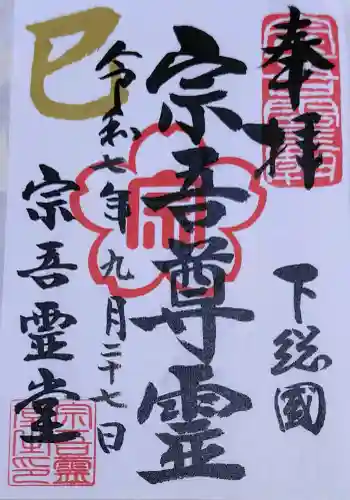 奉拝
下総國
宗吾尊霊
令和七年九月二十七日
巳
宗吾霊堂
宗